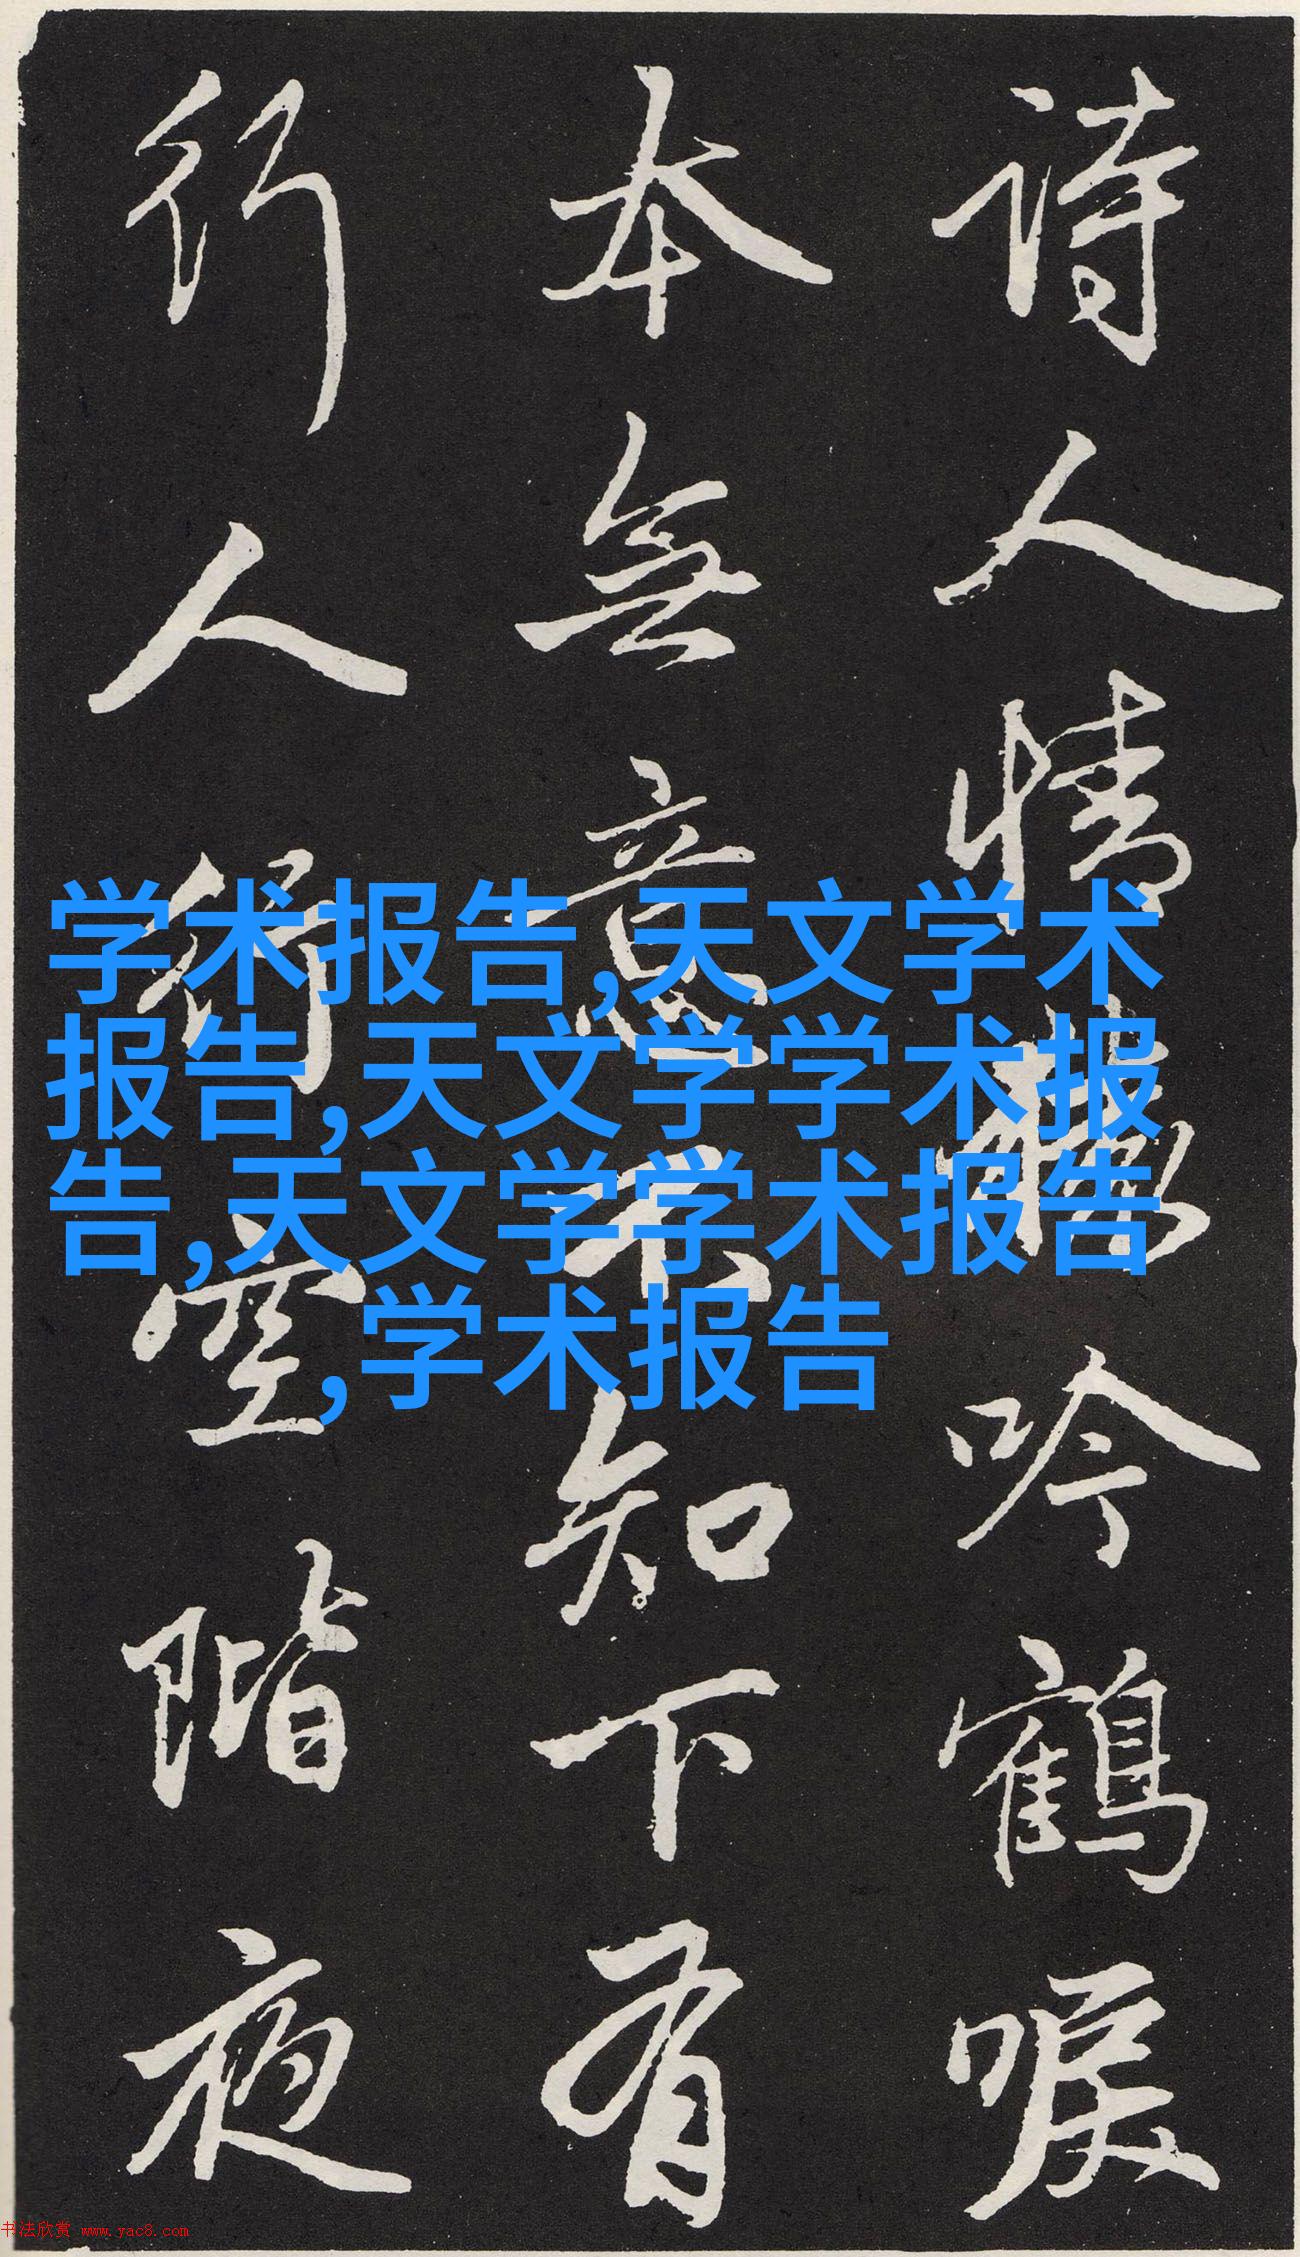 诗人情味吟鹤唳
本无意不知下有
行人衍空階夜
学术报告,天文学术
报告,天文学学术报
告,天文学学术报告
,学术报告
书法欣赏 www.yac8.com